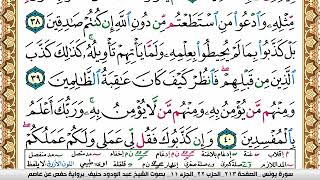 مِّثْلِهِ وَادْعُوا مَنِ اسْتَطَعْتُم مِّن دُونِ اللَّهِ إِن كُنتُمْ صَادِقِينَ
٣٨ بَلْ كَذَّبُوا بِمَا لَمْ يُحِيطُوا بِعِلْمِهِ وَلَمَّا يَأْتِهِمْ تَأْوِيلُهُ كَذَٰلِكَ كَذَّبَ
الَّذِينَ مِن قَبْلِهِمْ فَانظُرْ كَيْفَ كَانَ عَاقِبَةُ الظَّالِمِينَ ٣٩
وَمِنْهُم مَّن يُؤْمِنُ بِهِ وَمِنْهُم مَّن لَّا يُؤْمِنُ بِهِ وَرَبُّكَ أَعْلَمُ
بِالْمُفْسِدِينَ ٤٠ وَإِن كَذَّبُوكَ فَقُل لِّي عَمَلِي وَلَكُمْ عَمَلُكُمْ
سورة يونس الصفحة ٢١٣ الجزء ١١ بصوت الشيخ عبد الودود حنيف برواية حفص عن عاصم